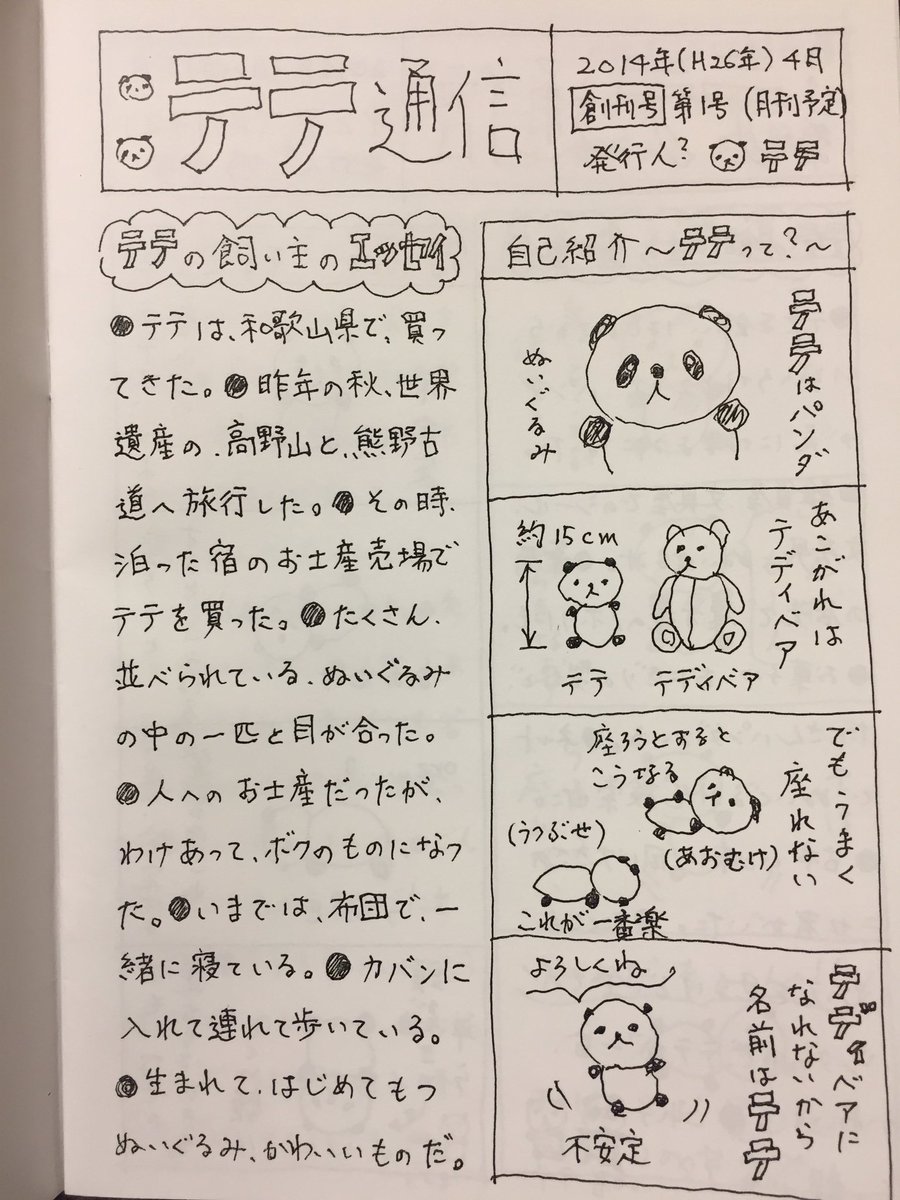 テテ通信
2014年(H26年)4月
創刊号 第1号 (月刊予定)
発行人? テテ
テテの飼い主のエッセイ
●テテは、和歌山県で、買っ
てきた。●昨年の秋、世界
遺産の、高野山と、熊野古
道へ旅行した。●その時、
泊った宿のお土産売場で
テテを買った。●たくさん、
並べられている、ぬいぐるみ
の中の一匹と目が合った。
●人へのお土産だったが、
わけあって、ボクのものになっ
た。●いまでは、布団で、一
緒に寝ている。●カバンに
入れて連れて歩いている。
●生まれて、はじめてもつ
ぬいぐるみ、かわいいものだ。
自己紹介〜テテって?〜
テテはパンダ
ぬいぐるみ
あこがれは
テディベア
約15cm
テテ
テディベア
でもうまく
座れない
座ろうとすると
こうなる
(あおむけ)
(うつぶせ)
これが一番楽
テディベアに
なれないから
名前はテテ
よろしくね
不安定